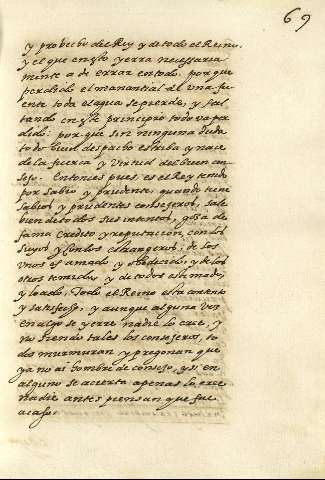 69
y probecho del Rey y de todo el Reino,
y el que en esto yerra necessaria
mente a de errar en todo. porque
perdido el manantial de una fu
ente toda el agua se pierde, y fal
tando en este principio todo va per
dido: porque sin ninguna duda
todo buen despacho estriba y nace
de la fuerça y virtud del buen con
sejo. Entonces pues es el Rey tenido
por sabio y prudente, quando tiene
sabios y prudentes consejeros, sale
bien de todos sus intentos, goza de
fama credito y reputacion, con los
suyos y con los estrangeros; de los
unos es amado y obedecido, y de los
otros temido, y de todos estimado,
y loado, Todo el Reino esta contento
y satisfecho, y aunque alguna vez
en algo se yerre nadie lo cree, y
no siendo tales los consejeros, to
dos murmuran y pregonan que
ya no ai hombre de consejo, y si en
alguno se acierta apenas lo cree
nadie antes piensan que fue
acaso.